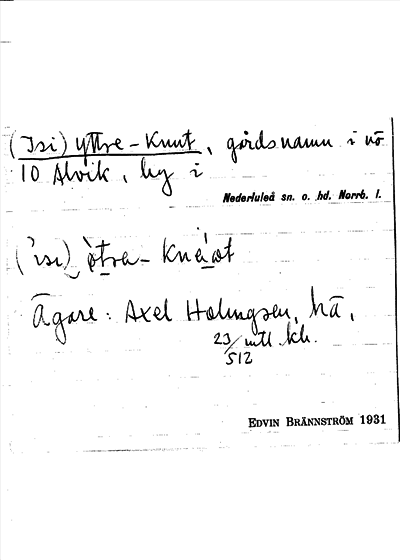 (Isi) yttre-Knut, gårdsnamn i nö
10 Alvik, by i
Nederluleå sn. o. hd. Norrb. l.
Ägare: Axel Holmgren, hä,
23/512 mtl. kh.
EDVIN BRÄNNSTRÖM 1931